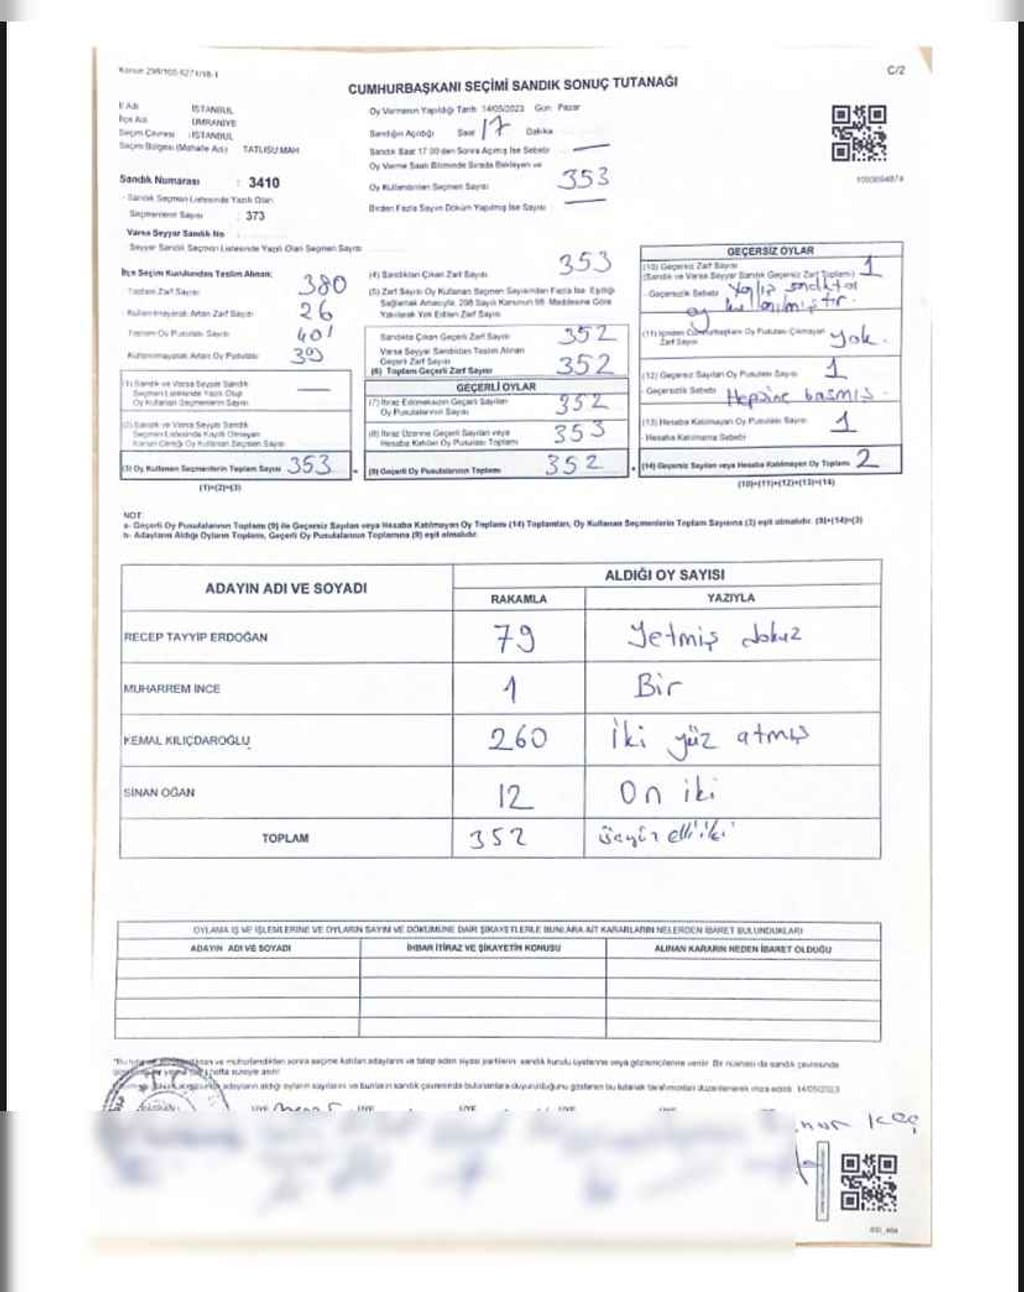 Kanun 298/105-6271/18-1
C/2
CUMHURBAŞKANI SEÇİMİ SANDIK SONUÇ TUTANAĞI
İl Adı : İSTANBUL
İlçe Adı : ÜMRANİYE
Seçim Çevresi : İSTANBUL
Seçim Bölgesi (Mahalle Adı) : TATLISU MAH
Sandık Numarası : 3410
Sandık Seçmen Listesinde Yazılı Olan
Seçmenlerin Sayısı : 373
Varsa Seyyar Sandık No
Seyyar Sandık Seçmen Listesinde Yazılı Olan Seçmen Sayısı
Oy Vermenin Yapıldığı Tarih 14/05/2023 Gün Pazar
Sandığın Açıldığı Saat 17 Dakika
Sandık Saat 17.00'den Sonra Açılmış İse Sebebi —
Oy Verme Saati Bitiminde Sırada Bekleyen ve
Oy Kullandırılan Seçmen Sayısı 353
Birden Fazla Sayım Döküm Yapılmış İse Sayısı —
İlçe Seçim Kurulundan Teslim Alınan;
Toplam Zarf Sayısı 380
Kullanılmayarak Artan Zarf Sayısı 26
Toplam Oy Pusulası Sayısı 401
Kullanılmayarak Artan Oy Pusulası
(1) Sandık ve Varsa Seyyar Sandık
Seçmen Listesinde Yazılı Olup
Oy Kullanan Seçmenlerin Sayısı —
(2) Sandık ve Varsa Seyyar Sandık
Seçmen Listesinde Kayıtlı Olmayan
Kanun Gereği Oy Kullanan Seçmen Sayısı
(3) Oy Kullanan Seçmenlerin Toplam Sayısı 353
(1)+(2)=(3)
(4) Sandıktan Çıkan Zarf Sayısı 353
(5) Zarf Sayısı Oy Kullanan Seçmen Sayısından Fazla İse, Eşitliği
Sağlamak Amacıyla, 298 Sayılı Kanunun 98. Maddesine Göre
Yakılarak Yok Edilen Zarf Sayısı
Sandıkta Çıkan Geçerli Zarf Sayısı 352
Varsa Seyyar Sandıktan Teslim Alınan
Geçerli Zarf Sayısı
(6) Toplam Geçerli Zarf Sayısı 352
GEÇERLİ OYLAR
(7) İtiraz Edilmeksizin Geçerli Sayılan
Oy Pusulalarının Sayısı 352
(8) İtiraz Üzerine Geçerli Sayılan veya
Hesaba Katılan Oy Pusulası Toplamı 353
(9) Geçerli Oy Pusulalarının Toplamı 352
GEÇERSİZ OYLAR
(10) Geçersiz Zarf Sayısı
(Sandık ve Varsa Seyyar Sandık Geçersiz Zarf Toplamı) 1
Geçersizlik Sebebi Yanlış sandıkta
oy kullanılmıştır.
(11) İçinden Cumhurbaşkanı Oy Pusulası Çıkmayan
Zarf Sayısı yok.
(12) Geçersiz Sayılan Oy Pusulası Sayısı 1
Geçersizlik Sebebi Hepsine basmış.
(13) Hesaba Katılmayan Oy Pusulası Sayısı 1
Hesaba Katılmama Sebebi
(14) Geçersiz Sayılan veya Hesaba Katılmayan Oy Toplamı 2
(10)+(11)+(12)+(13)=(14)
NOT:
a- Geçerli Oy Pusulalarının Toplamı (9) ile Geçersiz Sayılan veya Hesaba Katılmayan Oy Toplamı (14) Toplamları, Oy Kullanan Seçmenlerin Toplam Sayısına (3) eşit olmalıdır. (9)+(14)=(3)
b- Adayların Aldığı Oyların Toplamı, Geçerli Oy Pusulalarının Toplamına (9) eşit olmalıdır.
ADAYIN ADI VE SOYADI ALDIĞI OY SAYISI
RAKAMLA YAZIYLA
RECEP TAYYİP ERDOĞAN 79 Yetmiş dokuz
MUHARREM İNCE 1 Bir
KEMAL KILIÇDAROĞLU 260 İki yüz atmış
SİNAN OĞAN 12 On iki
TOPLAM 352 üçyüz elli iki
OYLAMA İŞ VE İŞLEMLERİNE VE OYLARIN SAYIM VE DÖKÜMÜNE DAİR ŞİKAYETLERLE BUNLARA AİT KARARLARIN NELERDEN İBARET BULUNDUKLARI
ADAYIN ADI VE SOYADI İHBAR İTİRAZ VE ŞİKAYETİN KONUSU ALINAN KARARIN NEDEN İBARET OLDUĞU
ve mühürlendikten sonra seçime katılan adayların ve talep eden siyasi partilerin sandık kurulu üyelerine veya gözlemcilerine verilir. Bir nüshası da sandık çevresinde
hafta süreyle asılır
adayların aldığı oyların sayılarını ve bunların sandık çevresinde bulunanlara duyurulduğunu gösteren bu tutanak tarafımızdan düzenlenerek imza edildi. 14/05/2023
ÜYE ÜYE ÜYE ÜYE